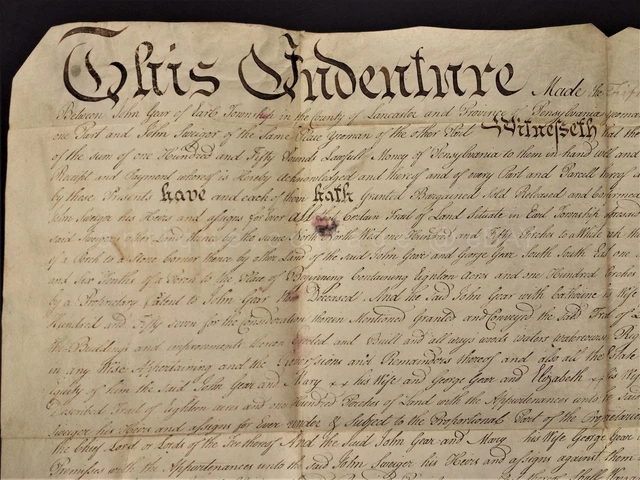 This Indenture Made the
Between John Gear of Earl Township in the County of Lancaster and Province of Pensylvania yeoman
one Part and John Sweiger of the Same Place Yeoman of the other Part Witnesseth that the
of the Sum of one Hundred and Fifty Pounds Lawfull Money of Pensylvania to them in hand well and
Receipt and Payment whereof is Hereby Acknowledged and thereof and of every Part and Parcell hereof
by these Presents have and each of them hath Granted Bargained Sold Released and Confirmed
John Sweiger His Heirs and assigns for Ever all Certain Tract of Land Situate in Earl Township
said Sweigers other Land thence by the same North North West one Hundred and Fifty Perches to a
of a Perch to a Stone corner thence by other Land of the said John Gear and George Gear South South East one
and Six Tenths of a Perch to the Place of Beginning Containing Eighteen Acres and one Hundred Perches
by a Proprietary Patent to John Gear Deceased And the Said John Gear with Catharine is Wife
Hundred and Fifty Seven for the Consideration therein Mentioned Granted and Conveyed the said Tract of L
the Buildings and improvements thereon Erected and Built and all ways woods waters watercourses Rig
in any Wise Appertaining and the Reversions and Remainders thereof and also all the Estate
Equity of them the said John Gear and Mary his Wife and George Gear and Elizabeth his Wi
Described Tract of Eighteen acres and one Hundred Perches of Land with the Appurtenances unto the Said
Sweiger his Heirs and assigns for Ever under & Subject to the Proportional Part of the
the Chief Lord or Lords of the Fee thereof And the Said John Gear and Mary his Wife George Gear
Premises with the Appurtenances unto the said John Sweiger his Heirs and assigns against them